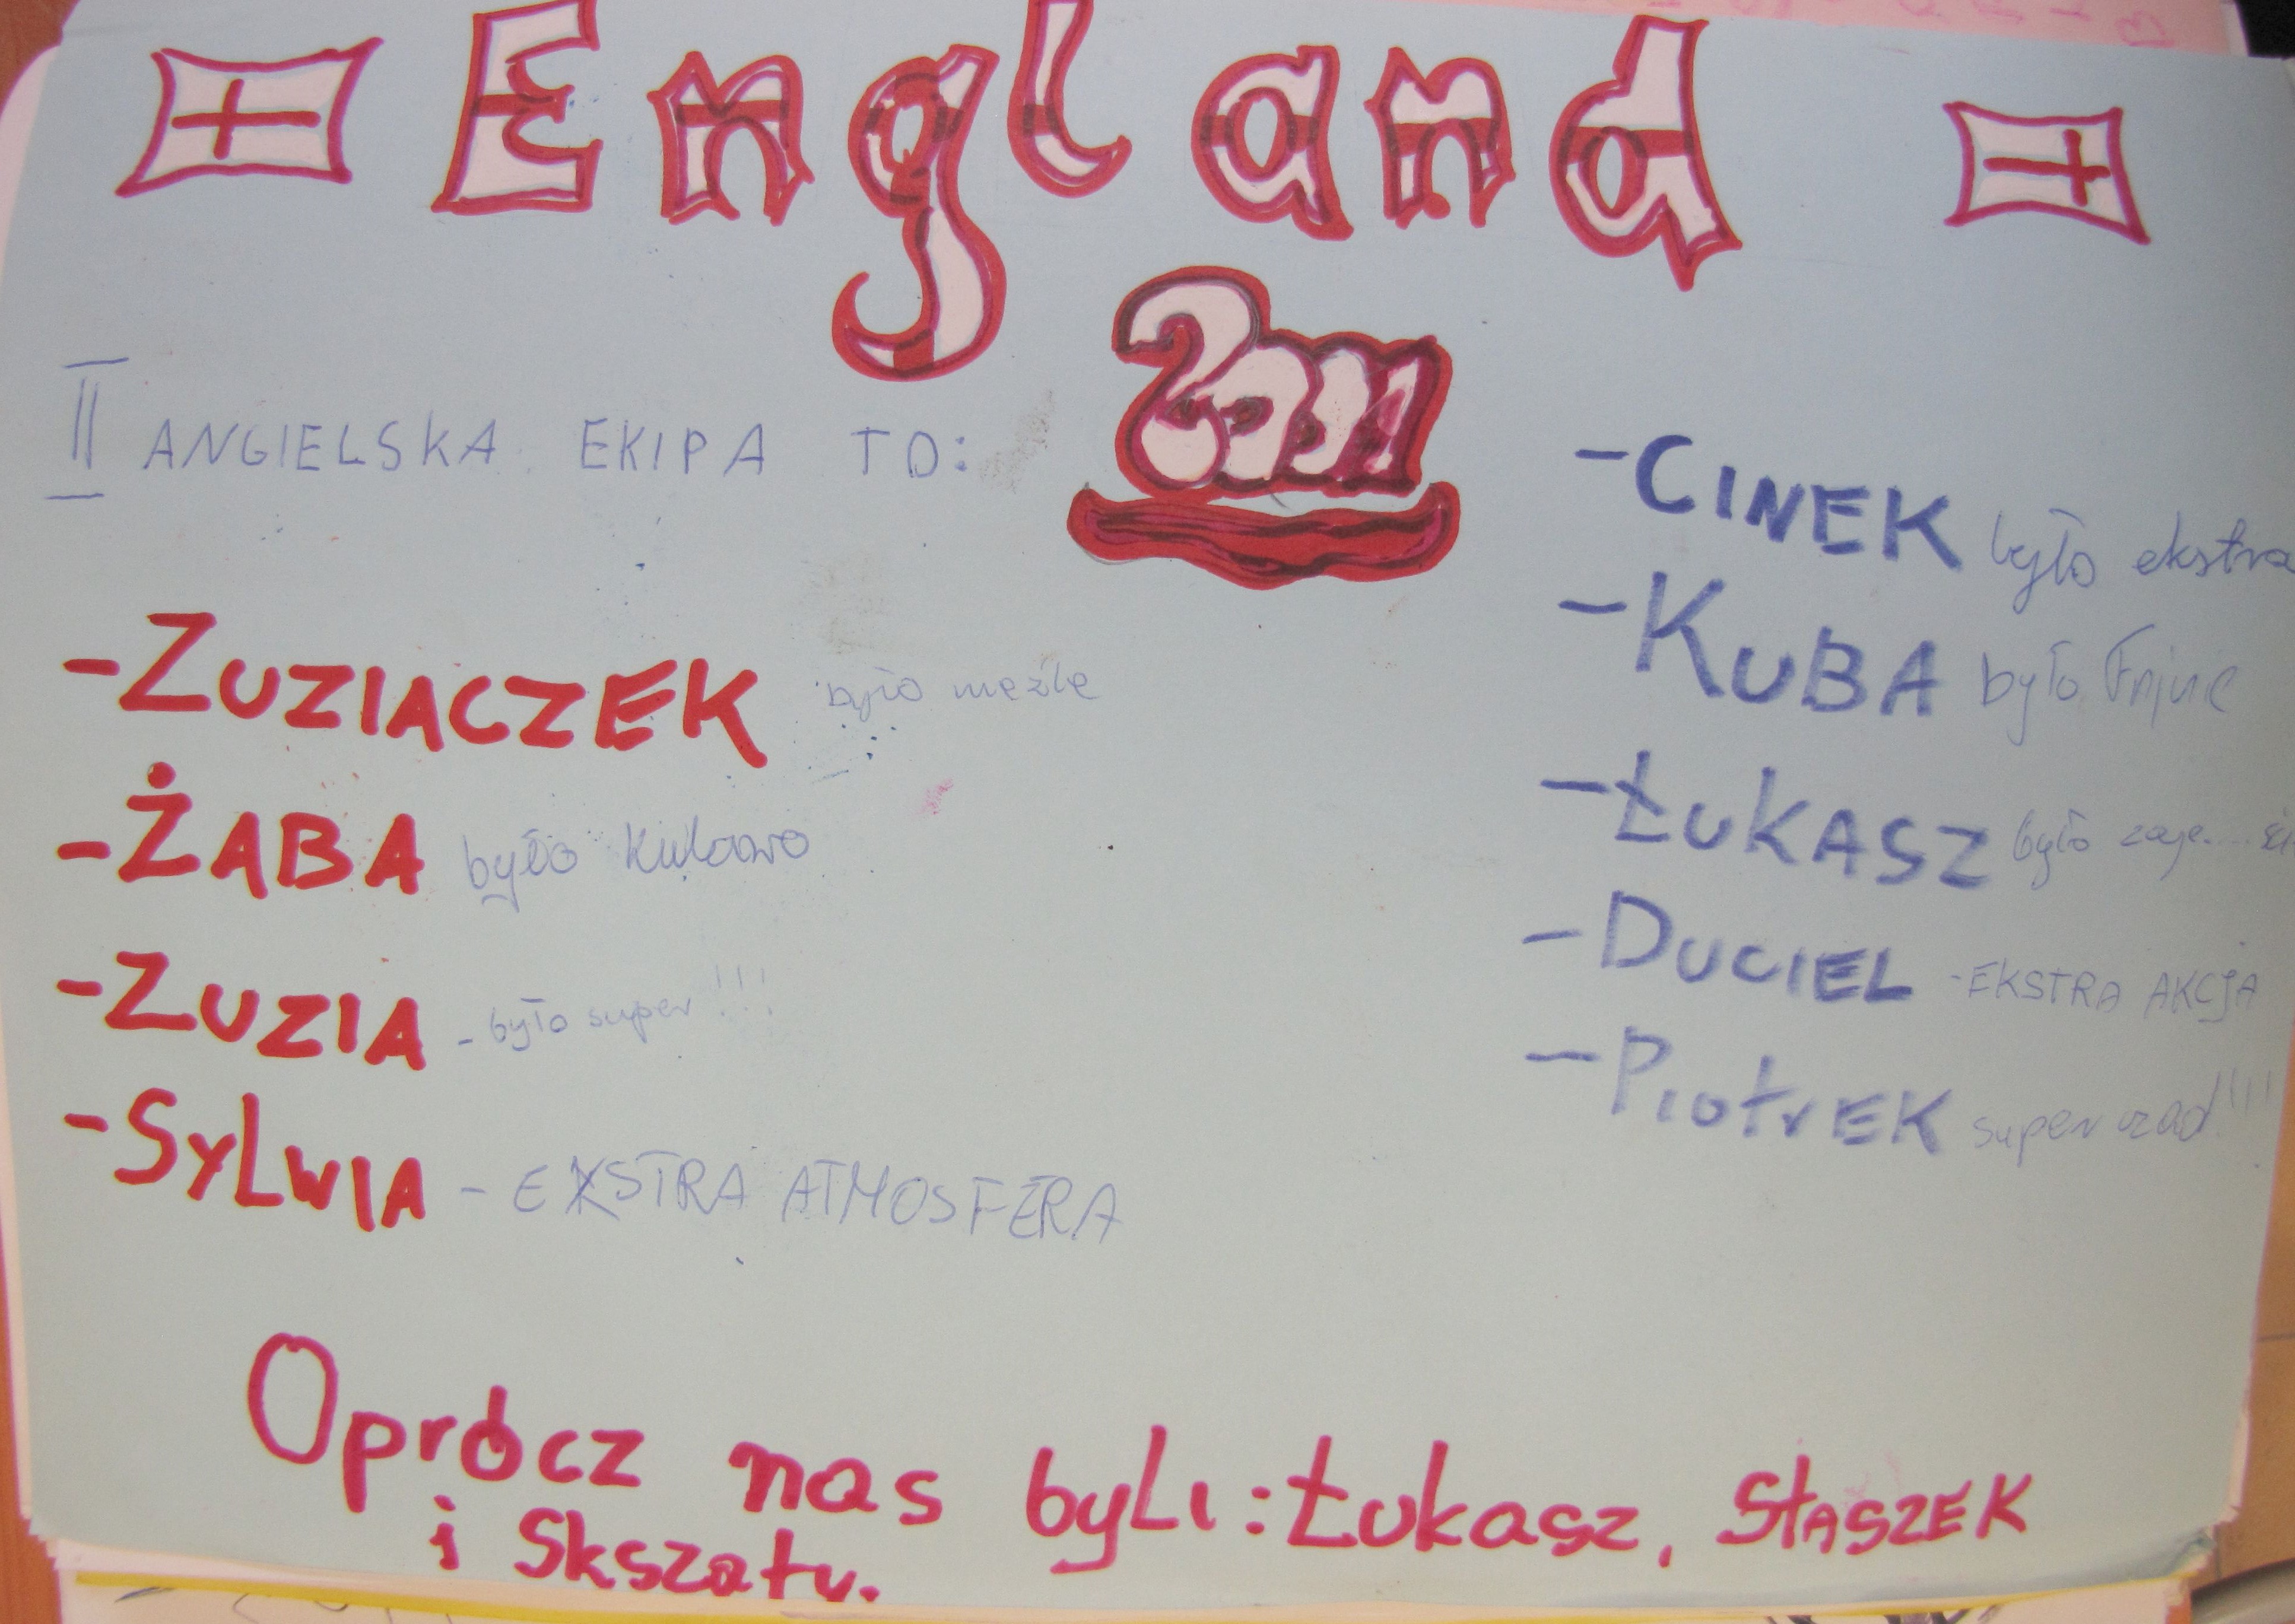 England
2011
II ANGIELSKA EKIPA TO:
-ZUZIACZEK było nieźle
-ŻABA było
-ZUZIA - było super!!!
-SYLWIA - EKSTRA ATMOSFERA
-CINEK było ekstra
-KUBA było Fajne
-ŁUKASZ było zaje....
-DUCIEL -EKSTRA AKCJA
-PiotrEK super
Oprócz nas byLi: Łukasz, StASZEK
i Skszatu.